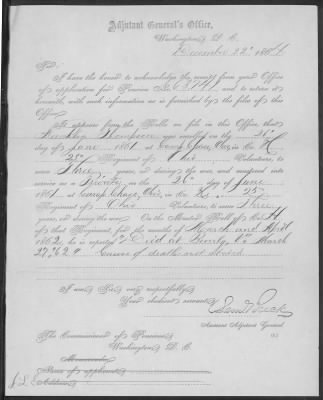 Adjutant General's Office,
Washington, D. C.
December 22d 1864
Sir:
I have the honor to acknowledge the receipt from your Office
of application for Pension No. and to return it
herewith, with such information as is furnished by the files of this
Office.
It appears from the Rolls on file in this Office, that
Thompson was enrolled on the
day of June 1861 at Camp Chase, Ohio, in Co. H,
25th Regiment of Ohio Volunteers, to
serve Three years, or during the war, and mustered into
service as a on the 26 day of June
1861 at Camp Chase, Ohio, in Co. 25th
Regiment of Ohio Volunteers, to serve Three
years, or during the war. On the Muster Roll of Co. H
of that Regiment, for the months of March and April
1862, he is reported "Died at Va March
27, 62" Cause of death not stated.
I am, Sir, very respectfully,
Your obedient servant,
Assistant Adjutant General.
The Commissioner of Pensions,
Washington, D. C.
Memoranda:
Name of applicant
Address